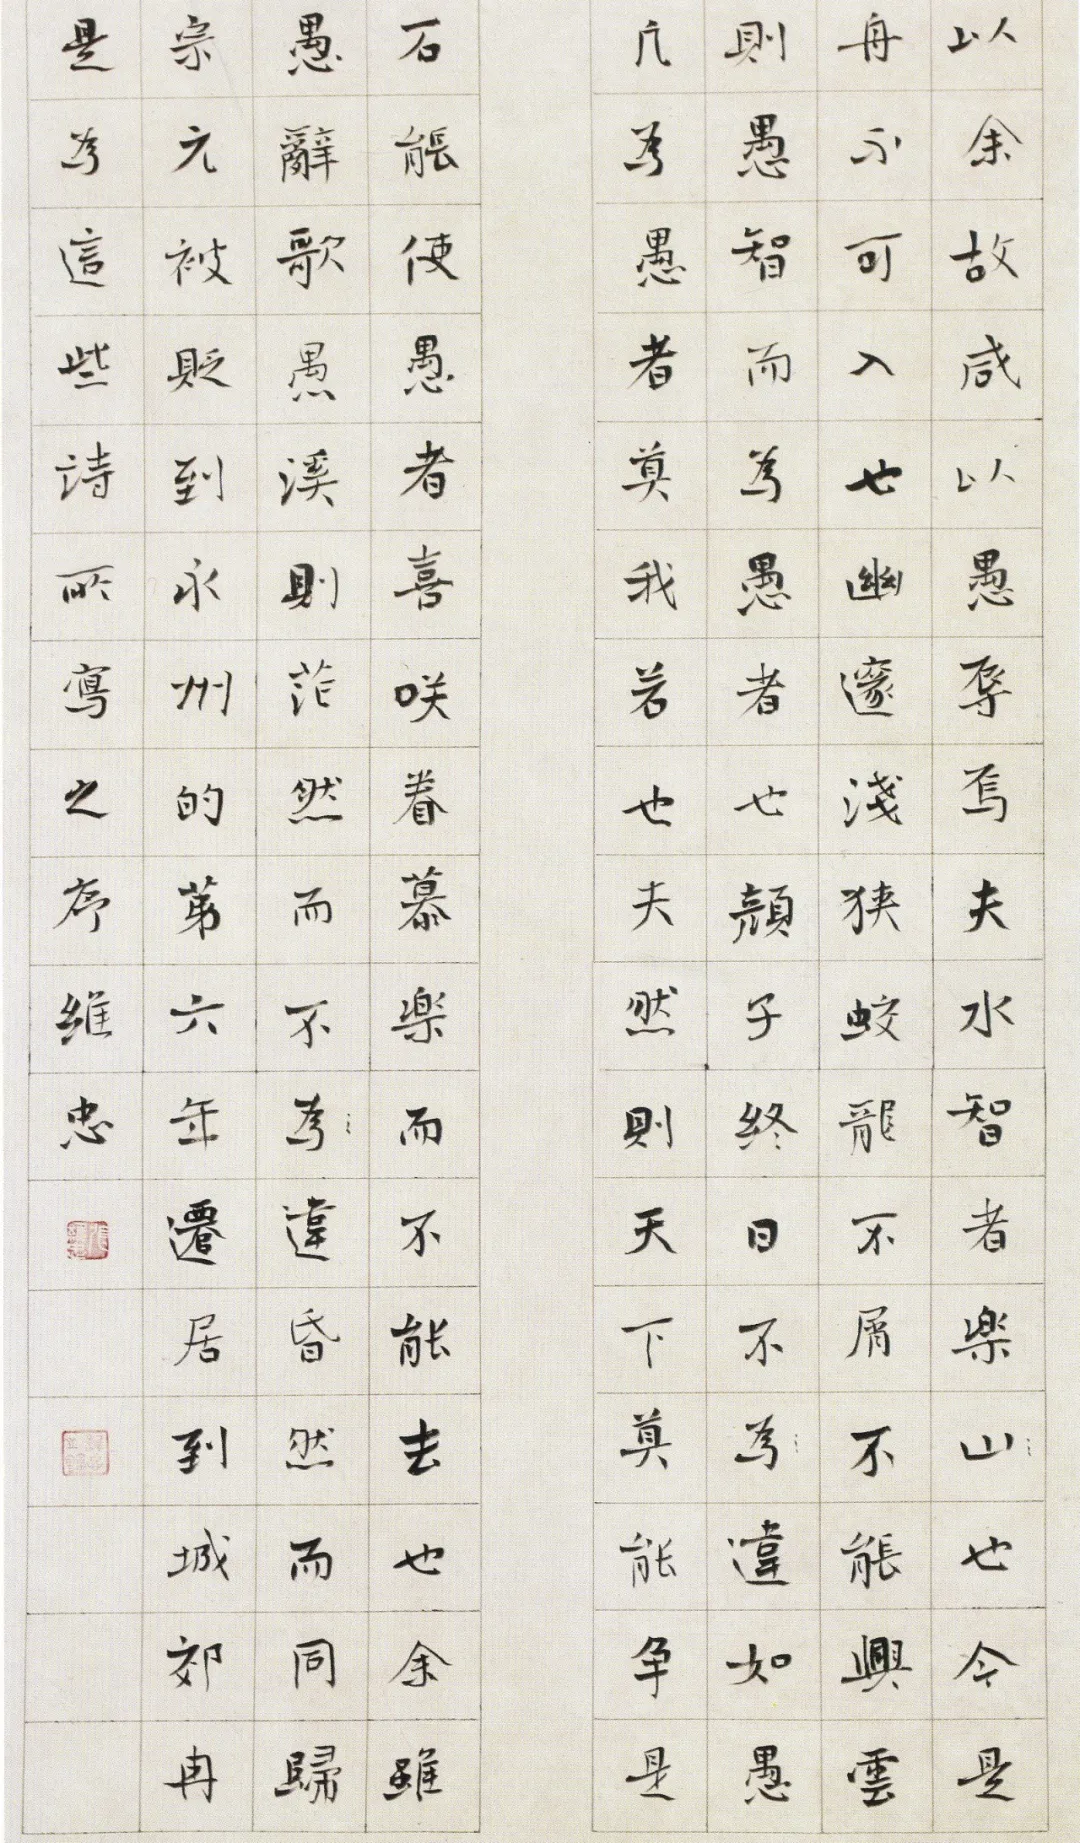 以余故咸以愚辱焉夫水智者樂山也今是
舟不可入也幽邃淺狹蛟龍不屑不能興雲
則愚智而為愚者也顏子終日不為違如愚
凡為愚者莫我若也夫然則天下莫能爭是
石能使愚者喜咲眷慕樂而不能去也余雖
愚辭歌愚溪則茫然而不為違昏然而同歸
宗元被貶到永州的第六年遷居到城郊冉
是為這些詩所寫之序維忠